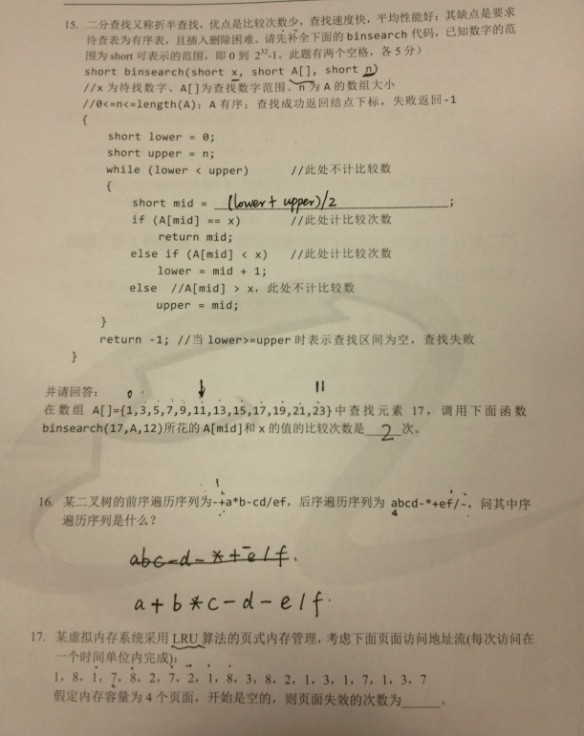 15. 二分查找又称折半查找，优点是比较次数少，查找速度快，平均性能好；其缺点是要求
待查表为有序表，且插入删除困难。请先补全下面的 binsearch 代码，已知数字的范
围为 short 可表示的范围，即 0 到 2³²-1。此题有两个空格，各 5 分）
short binsearch(short x, short A[], short n)
//x 为待找数字、A[]为查找数字范围、n 为 A 的数组大小
//0<=n<=length(A)；A 有序；查找成功返回结点下标，失败返回-1
{
short lower = 0;
short upper = n;
while (lower < upper) //此处不计比较数
{
short mid = (lower+upper)/2 ;
if (A[mid] == x) //此处计比较次数
return mid;
else if (A[mid] < x) //此处计比较次数
lower = mid + 1;
else //A[mid] > x，此处不计比较数
upper = mid;
}
return -1; //当 lower>=upper 时表示查找区间为空，查找失败
}
并请回答： 0 11
在数组 A[]={1,3,5,7,9,11,13,15,17,19,21,23}中查找元素 17，调用下面函数
binsearch(17,A,12)所花的 A[mid]和 x 的值的比较次数是 2 次。
16. 某二叉树的前序遍历序列为-+a*b-cd/ef，后序遍历序列为 abcd-*+ef/-，问其中序
遍历序列是什么？
abc-d-*+-e/f.
a+b*c-d-e/f.
17. 某虚拟内存系统采用 LRU 算法的页式内存管理，考虑下面页面访问地址流(每次访问在
一个时间单位内完成)：
1，8，1，7，8，2，7，2，1，8，3，8，2，1，3，1，7，1，3，7
假定内存容量为 4 个页面，开始是空的，则页面失效的次数为______。